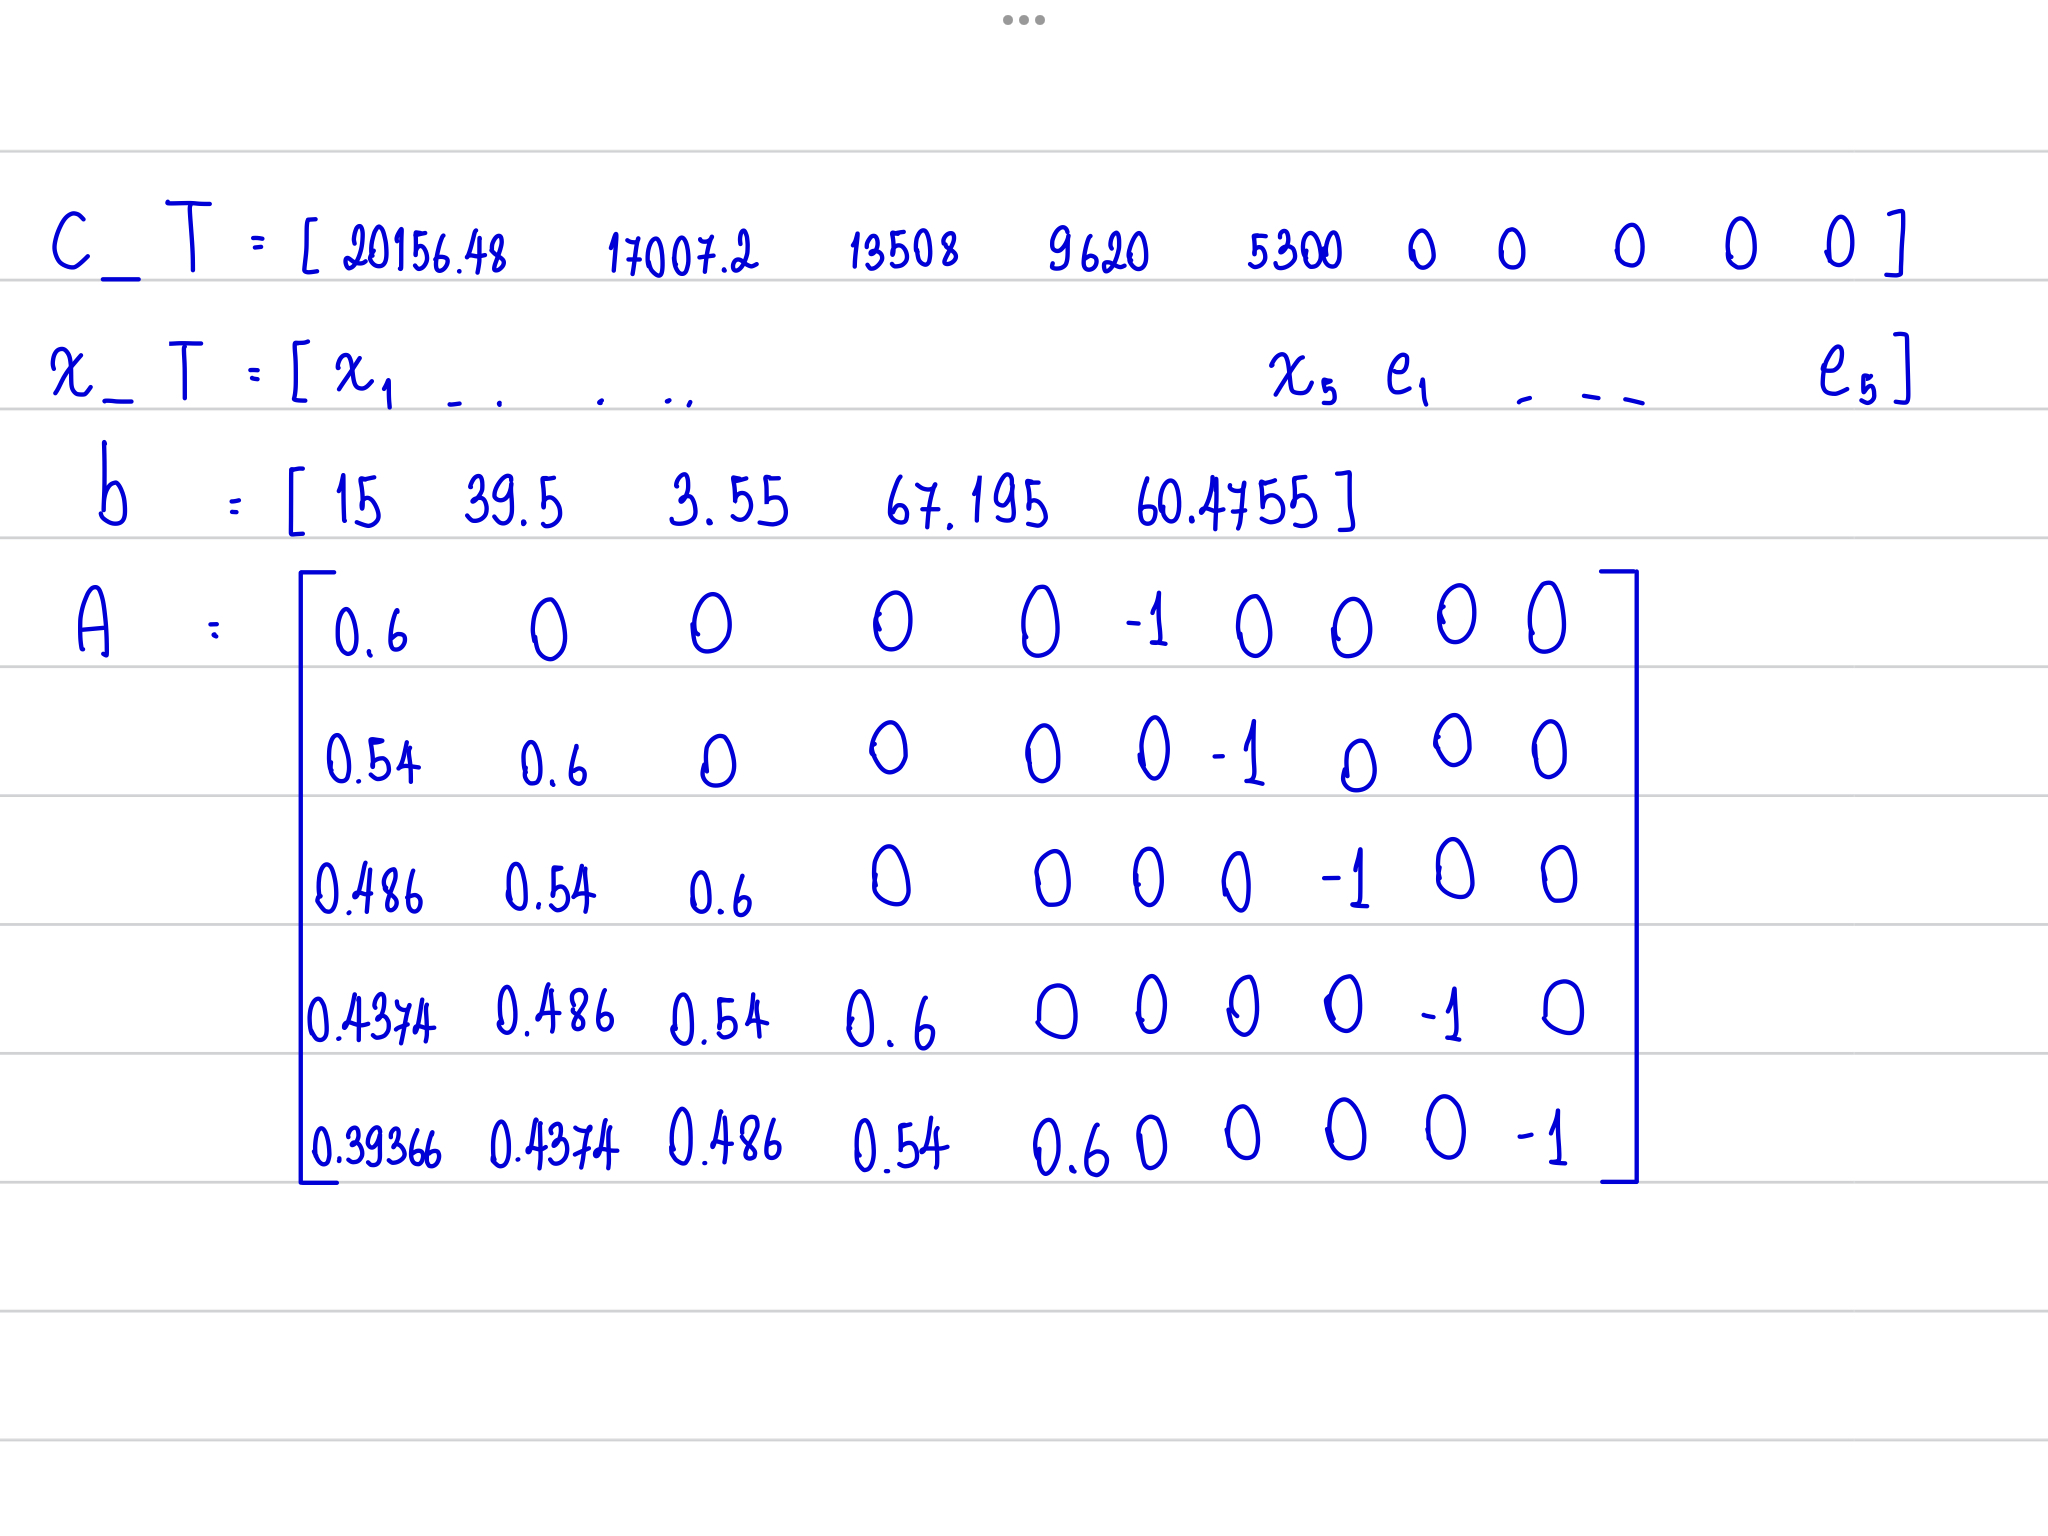 C_T = [ 20156.48 17007.2 13508 9620 5300 0 0 0 0 0 ]
x_T = [ x₁ - . . . . x₅ e₁ - - - e₅ ]
b = [ 15 39.5 3.55 67.195 60.4755 ]
A = [ 0.6 0 0 0 0 -1 0 0 0 0
0.54 0.6 0 0 0 0 -1 0 0 0
0.486 0.54 0.6 0 0 0 0 -1 0 0
0.4374 0.486 0.54 0.6 0 0 0 0 -1 0
0.39366 0.4374 0.486 0.54 0.6 0 0 0 0 -1 ]